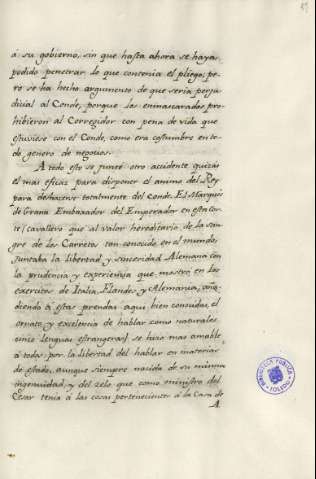 á su gobierno, sin que hasta ahora se haya
podido penetrar lo que contenia el pliego; pe-
ro se ha hecho argumento de que seria perju-
dicial al Conde, porque los enmascarados pro-
hibieron al Corregidor con pena de vida que
estuviese con el Conde, como era costumbre en te-
de genero de negocios.
A todo esto se juntó otro accidente quizás
el mas eficaz para disponer el animo del Rey
para deshacerse totalmente del Conde. El Marques
de Grana Embaxador del Emperador en esta Cor-
te (cavallero que al valor hereditario de la san-
gre de los Carretos tan conocido en el mundo,
juntaba la libertad y sinceridad Alemana con
la prudencia y experiencia que mostró en los
exercitos de Italia, Flandes y Alemania, aña-
diendo á estas prendas aqui bien conocidas, el
ornato y excelencia de hablar como naturales
cinco lenguas estrangeras) se hizo mas amable
á todos por la libertad del hablar en materias
de estado, aunque siempre nacida de su misma
ingenuidad, y del zelo que como ministro del
Cesar tenia á las cosas pertenecientes á la Casa de
A
BIBLIOTECA PUBLICA
TOLEDO